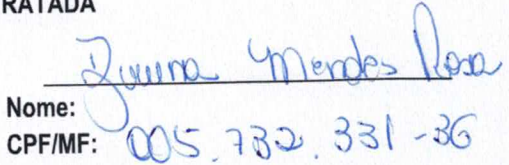 RATADA
Mendes Rosa
Nome:
CPF/MF: 005.732.331-36